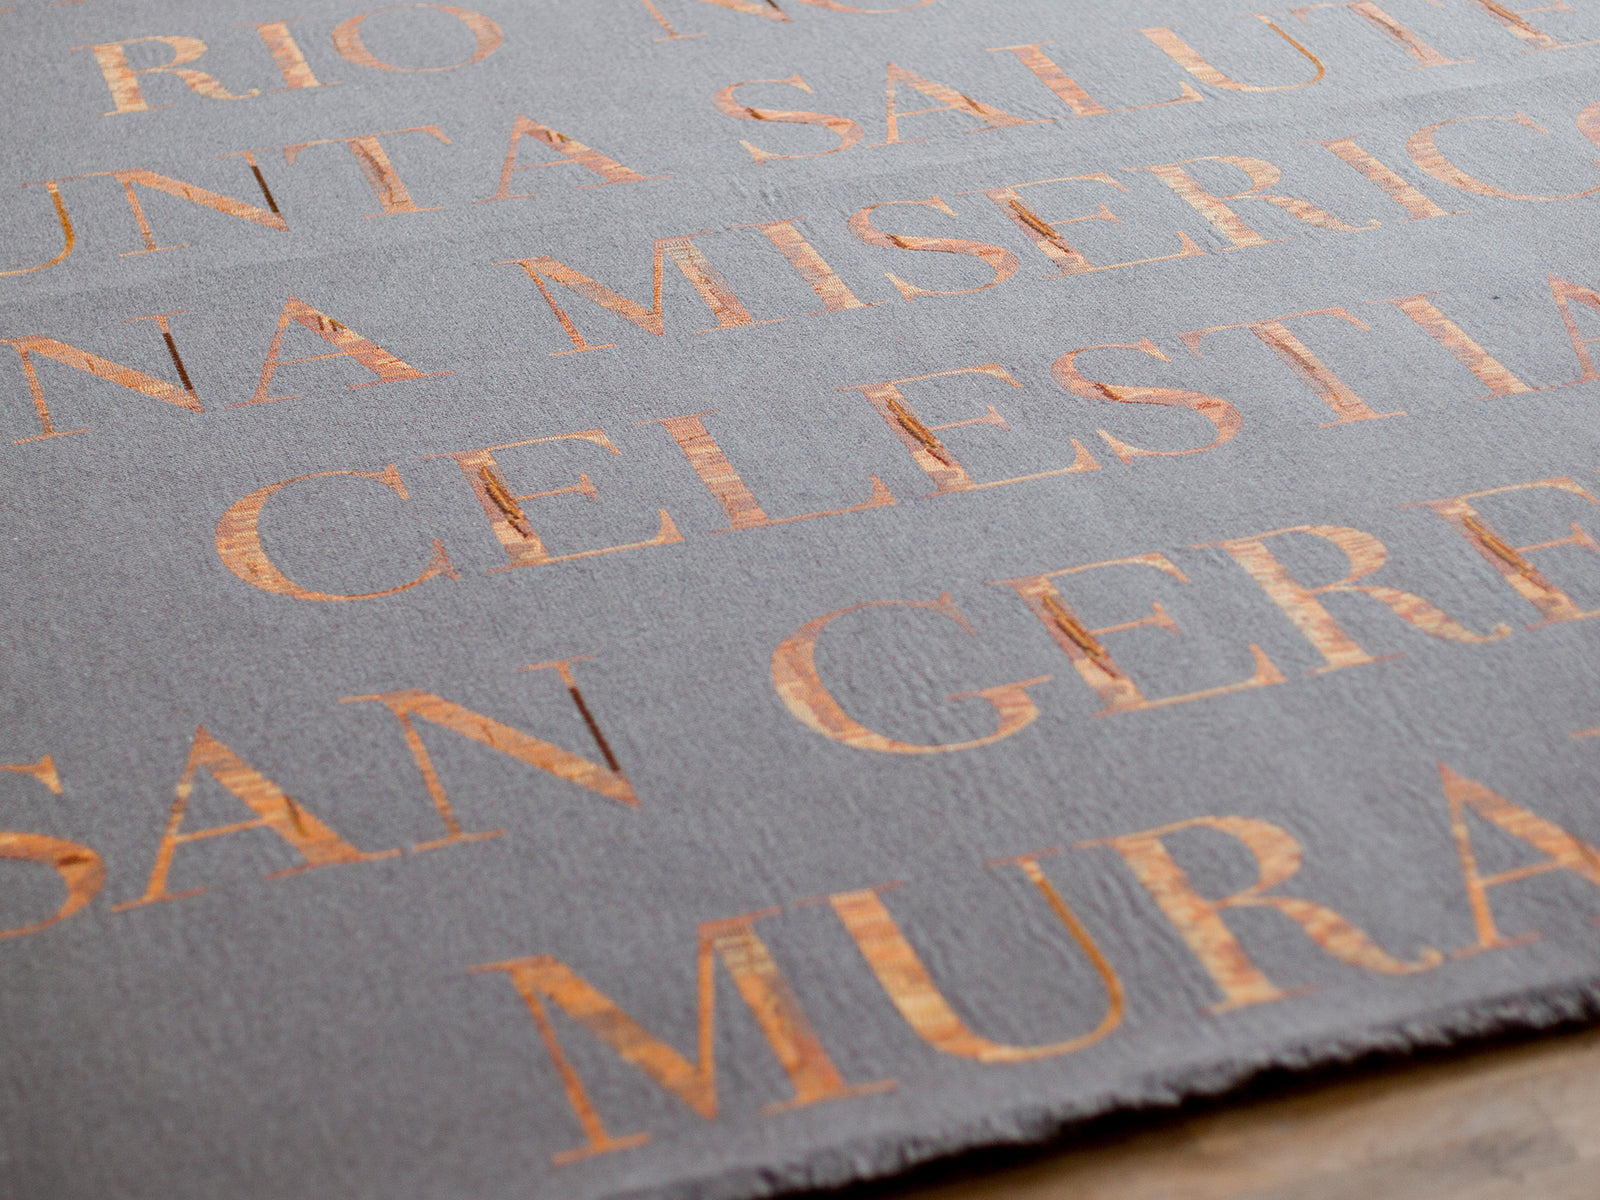 RIO NO
UNTA SALUTE
NA MISERICO
CELESTIA
SAN GERE
MURA